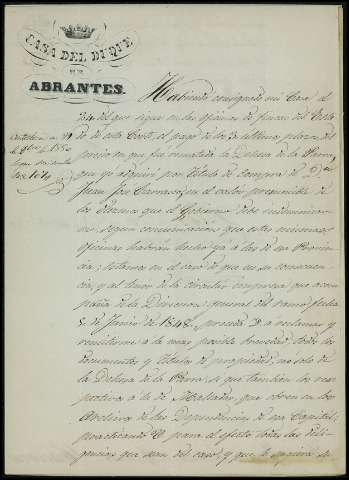 CASA DEL DUQUE
DE
ABRANTES.
Habiendo consignado mi Casa el
24 del que sigue en las oficinas de fincas del Estado
de esta Corte, el pago de los 3 ultimos plazos del
precio en que fué rematada la Dehesa de la Parra,
que yo adquirí por titulo de compra de Dn
Juan José Carrasco, en el
de los Diezmos que el Gobierno debe indemnizar
me, segun comunicacion que estas mismas
oficinas habrán hecho ya á las de esa Provin
cia; estamos en el caso de que en su consecuen
cia, y al tenor de la circular impresa que acom
paña de la Direccion general del ramo, fecha
8 de Junio de 1848, proceda V. á reclamar y
remitirme á la mas posible brevedad todos los
documentos y titulos de propiedad, no solo de
la Dehesa de la Parra, si que tambien los res
pectivos á la de que obren en los
Archivos de las Dependencias de esa Capital;
practicando V. para al efecto todas las dili
gencias que sean del caso, y que le sugiera su